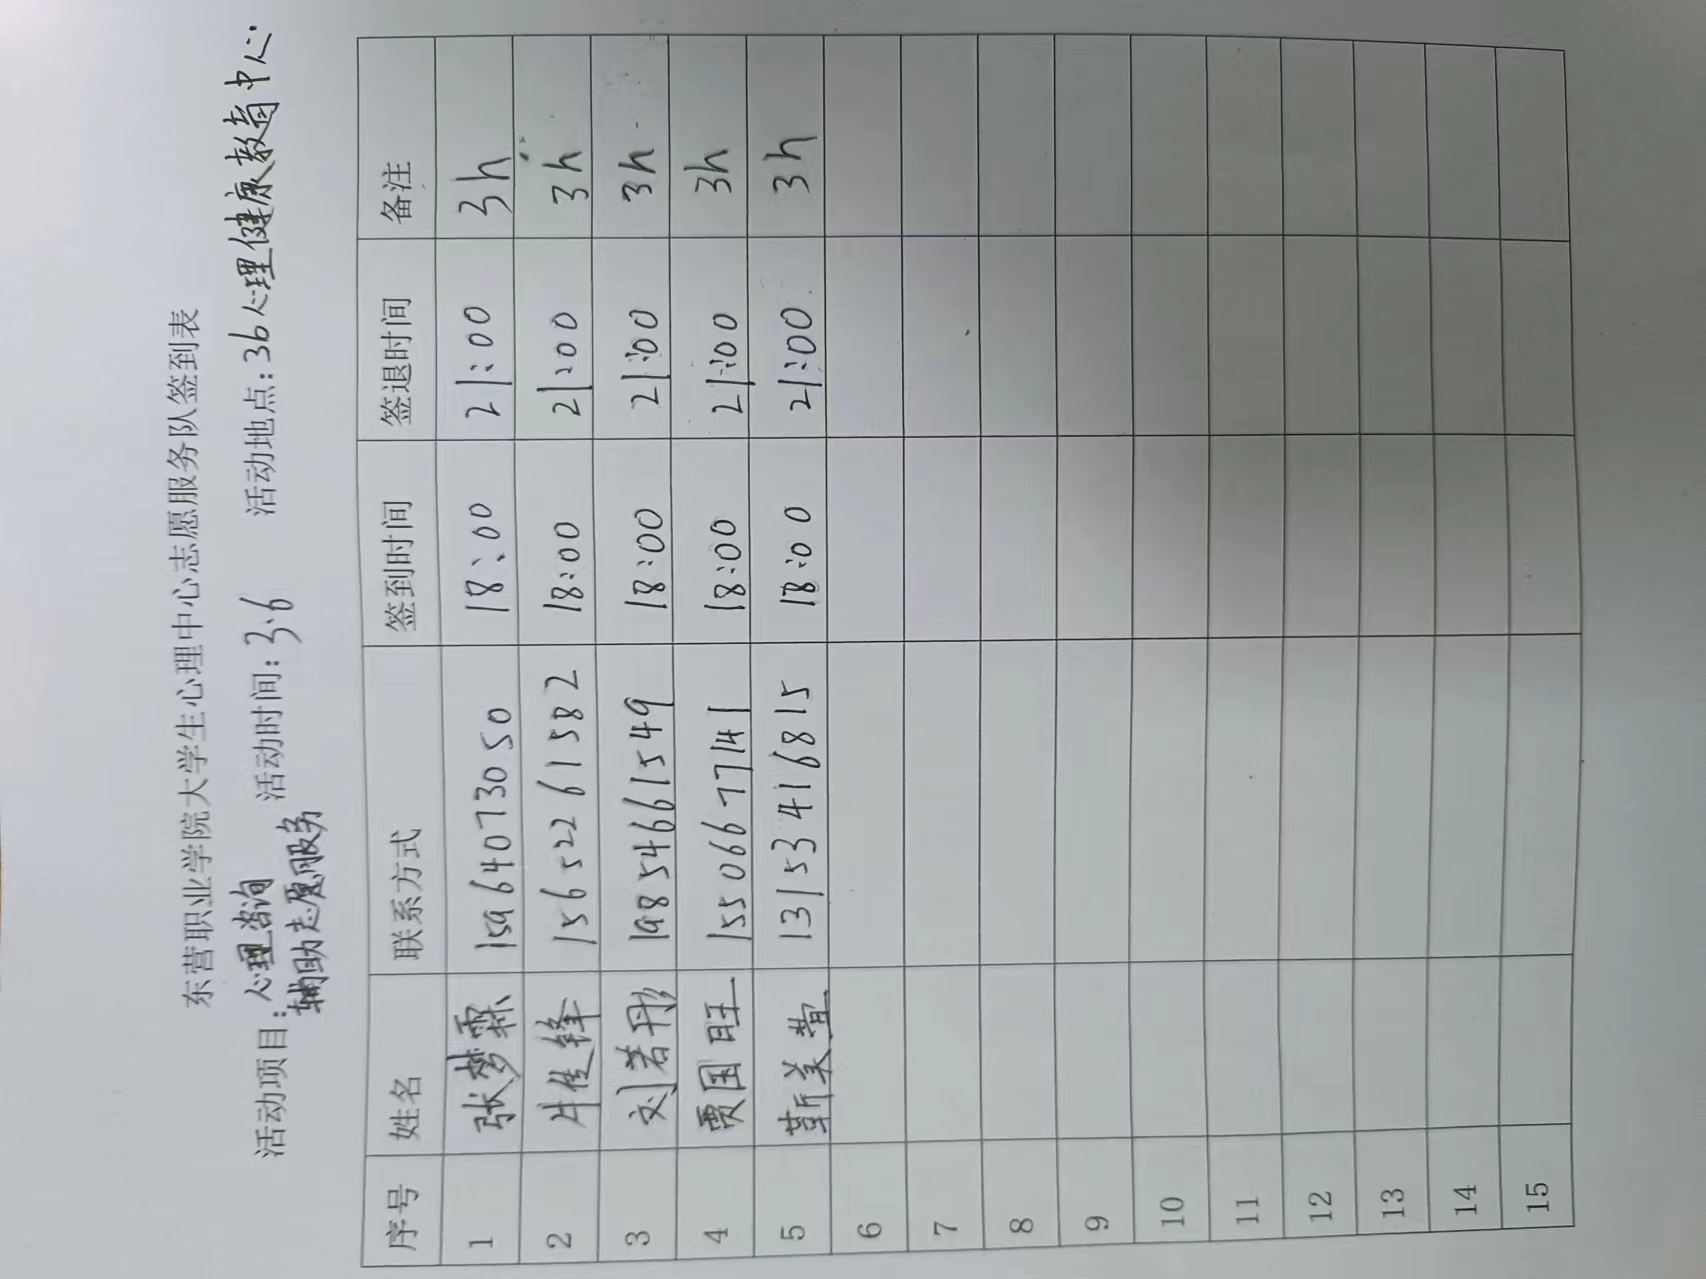 东营职业学院大学生心理中心志愿服务队签到表
活动项目：心理咨询辅助志愿服务 活动时间：3.6 活动地点：36心理健康教育中心
序号 姓名 联系方式 签到时间 签退时间 备注
1 张梦霖 15964073050 18:00 21:00 3h
2 牛佳锋 15652261582 18:00 21:00 3h
3 刘若彤 19854661549 18:00 21:00 3h
4 贾国旺 15506677141 18:00 21:00 3h
5 靳美萱 13153416815 18:00 21:00 3h
6
7
8
9
10
11
12
13
14
15